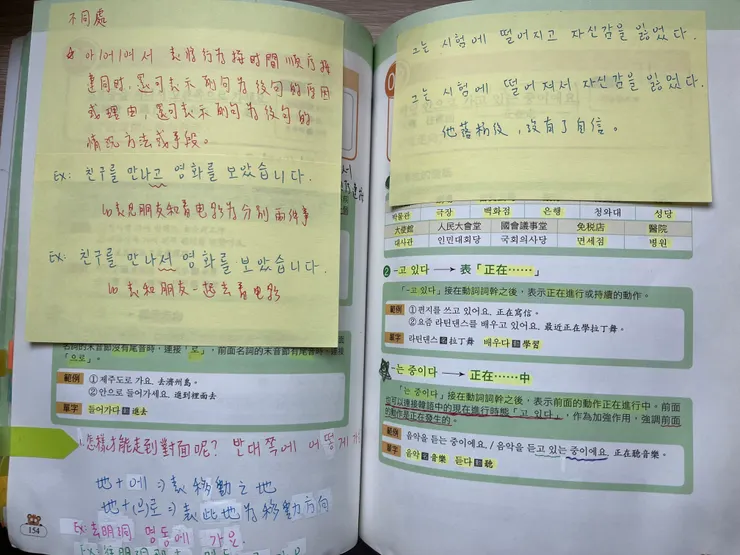 不同處
아/어/여서 表將行為按時間順序接
連同時,還可表示前句為後句的原因
或理由,還可表示前句為後句的
情況方法或手段。
Ex: 친구를 만나고 영화를 보았습니다.
↳表見朋友和看電影為分別兩件事
Ex: 친구를 만나서 영화를 보았습니다.
↳表和朋友一起去看電影
名詞的末音節沒有尾音時,連接「로」,前面名詞的末音節有尾音時,連接
「으로」。
範例 ①제주도로 가요. 去濟州島。
②안으로 들어가세요. 進到裡面去
單字 들어가다 動 進去
怎樣才能走到對面呢? 반대쪽에 어떻게
地+에 ⇒ 表移動之地
地+(으)로 ⇒ 表此地為移動方向
Ex: 去明洞 명동에 가요.
154
그는 시험에 떨어지고 자신감을 잃었다.
그는 시험에 떨어져서 자신감을 잃었다.
他落榜後,沒有了自信。
박물관 극장 백화점 은행 청와대 성당
大使館 人民大會堂 國會議事堂 免稅店 醫院
대사관 인민대회당 국회의사당 면세점 병원
❷ -고 있다 → 表「正在……」
「-고 있다」接在動詞詞幹之後,表示正在進行或持續的動作。
範例 ①편지를 쓰고 있어요. 正在寫信。
②요즘 라틴댄스를 배우고 있어요. 最近正在學拉丁舞。
單字 라틴댄스 名 拉丁舞 배우다 動 學習
-는 중이다 → 正在……中
「는 중이다」接在動詞詞幹之後,表示前面的動作正在進行中。前面
也可以連接韓語中的現在進行時態「고 있다」,作為加強作用,強調前面
的動作是正在發生的。
範例 음악을 듣는 중이에요. / 음악을 듣고 있는 중이에요. 正在聽音樂。
單字 음악 名 音樂 듣다 動 聽